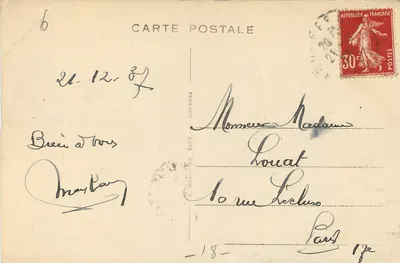 6
CARTE POSTALE
REPUBLIQUE FRANÇAISE
30c
POSTES
21-12-37
Bien à vous
Monsieur Madame
Louat
10 rue Lécluse
Paris
17e
-18-